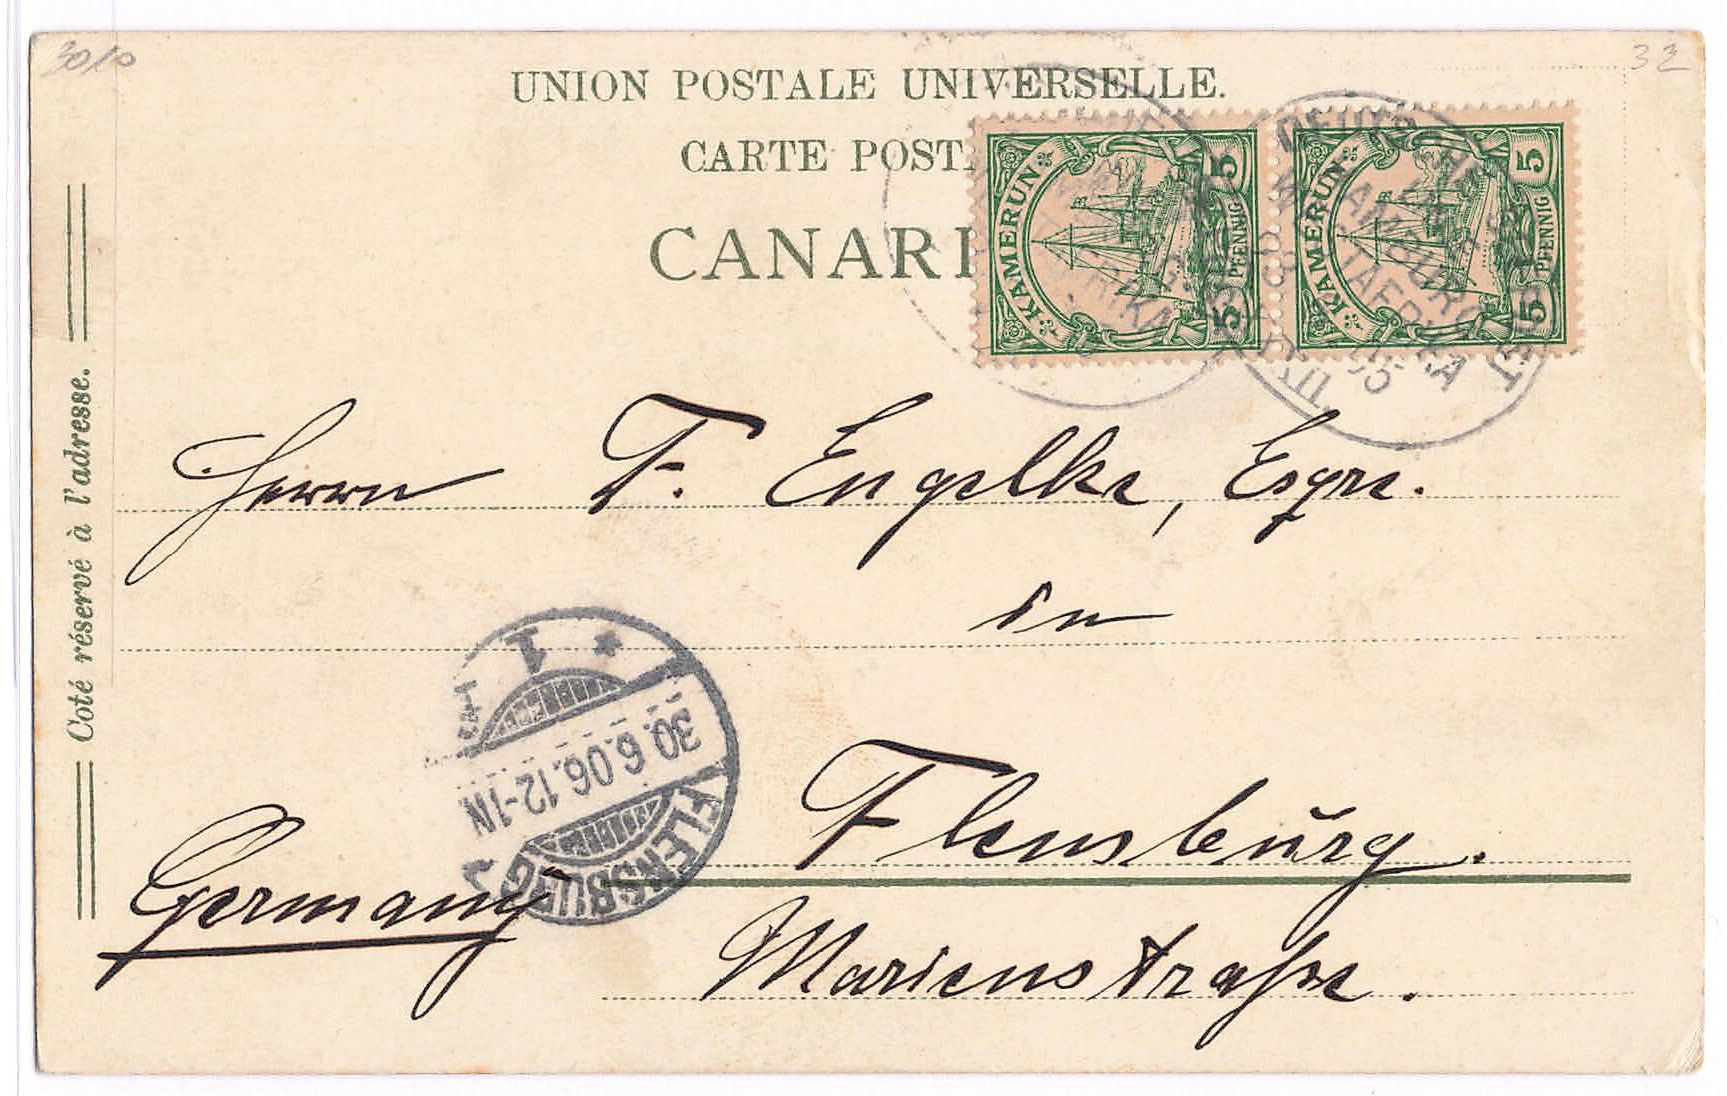 3010
32
UNION POSTALE UNIVERSELLE.
CARTE POST
CANARI
KAMERUN
5 PFENNIG 5
KAMERUN
5 PFENNIG 5
Coté réservé à l'adresse.
Herrn F. Engelke, Esqre.
in
Flensburg.
Marienstraße.
Germany
FLENSBURG
30.6.06.12-1N
* 1